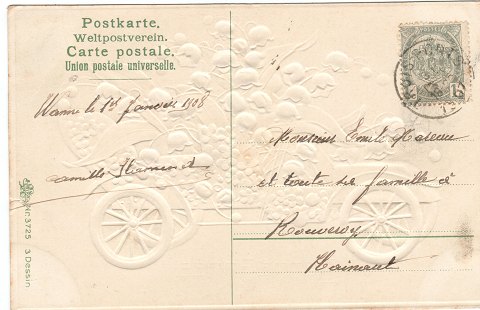 Postkarte.
Weltpostverein.
Carte postale.
Union postale universelle.
Wanne le 1 Janvier 1908
Camille
Monsieur Emile
et toute sa famille à
Rouveroy
Hainaut
Nr. 3725 3 Dessin